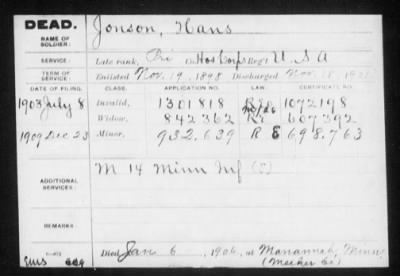 DEAD.
Jonson, Hans
NAME OF SOLDIER:
SERVICE:
Late rank, Pri Co. Hos Corps Reg't U S A
TERM OF SERVICE:
Enlisted Nov. 19, 1898 Discharged Nov. 18, 1901
DATE OF FILING. CLASS. APPLICATION NO. LAW. CERTIFICATE NO.
1903 July 8 Invalid, 1301818 1072198
Widow, 842362 607392
1909 Dec 23 Minor, 932.639 698.763
ADDITIONAL SERVICES:
M 14 Minn Inf
REMARKS:
Died Jan 6, 1906, at Manannah, Minn
(Meeker Co.)